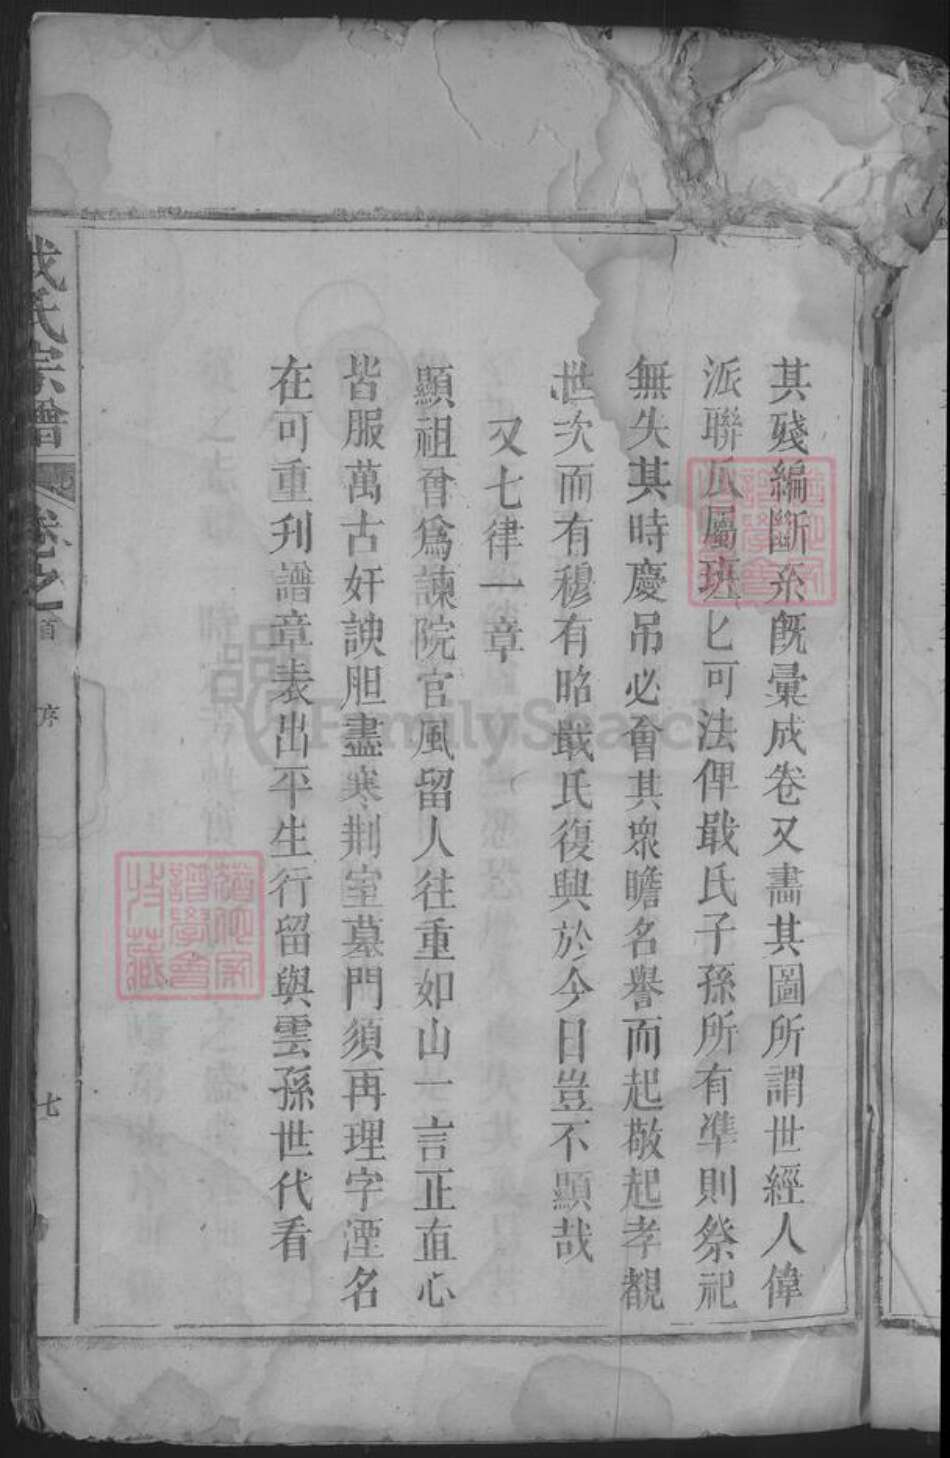 其殘編斷帋既彙成卷又畵其圖所謂世經人偉
派聯瓜屬班匕可法俾戢氏子孫所有準則祭祀
無失其時慶吊必會其衆瞻名譽而起敬起孝覩
世次而有穆有昭戢氏復興於今日豈不顯哉
又七律一章
顯祖曾爲諫院官風留人往重如山一言正直心
皆服萬古奸諛胆盡寒荆室墓門須再理字湮名
在可重刋譜章表出平生行留與雲孫世代看
氏宗譜
卷之首
序
七
FamilySearch